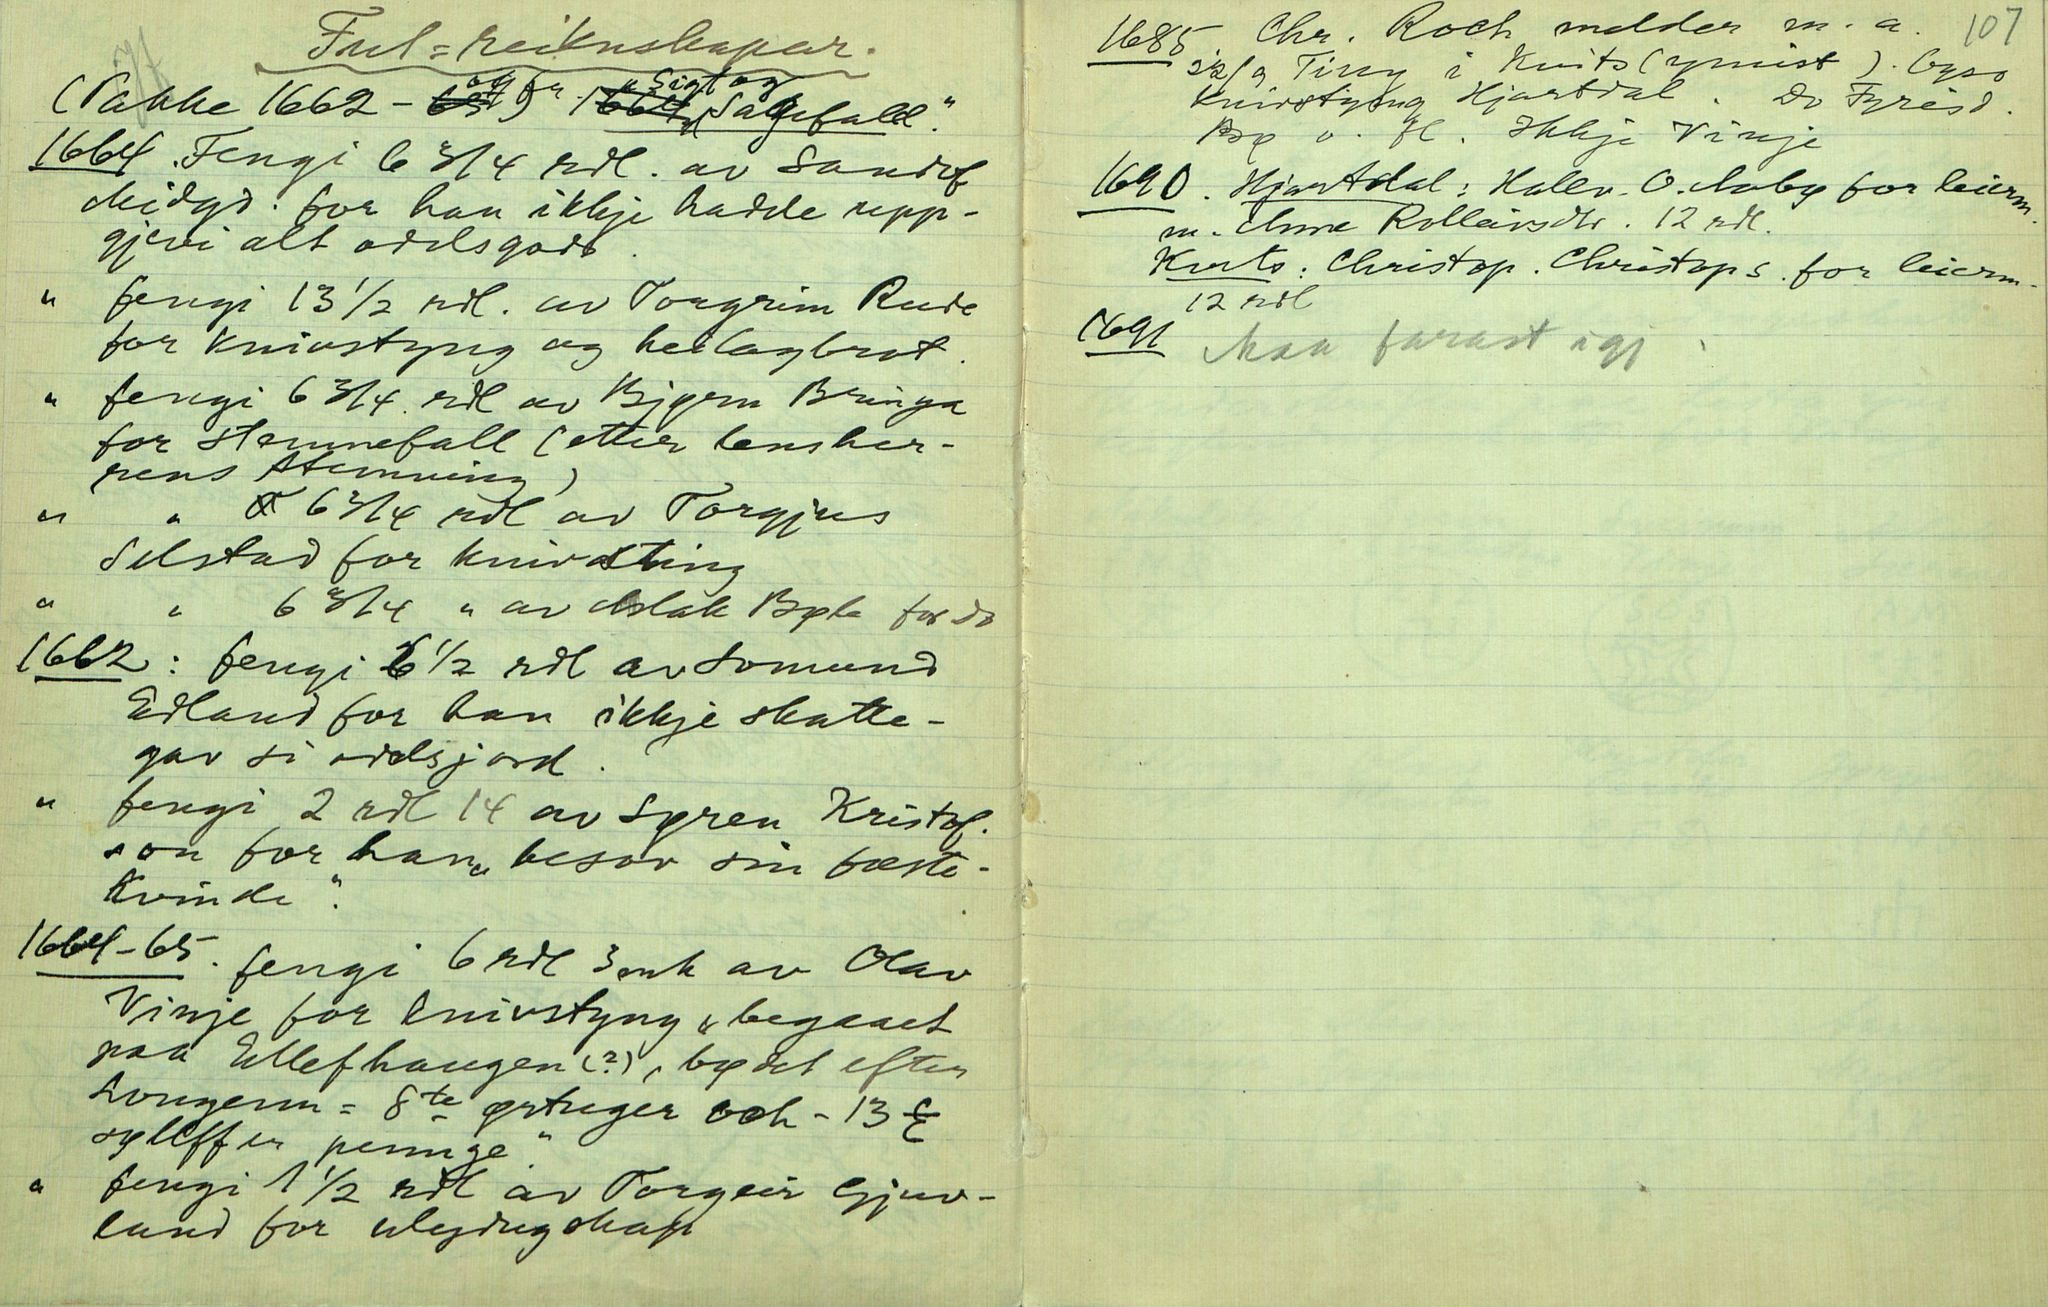 Fut=reiknskapar.
(Pakke 1662 - og fr. 1664 "Sigt og Sagefald."
1664. Fengi 6 3/4 rdl. av Sandof
Midgd. for han ikkje hadde upp-
gjevi alt odelsgods.
" fengi 13 1/2 rdl. av Torgrim Rude
for knivstyng og helagbrot.
" fengi 6 3/4 rdl av Bjørn Bringa
for stemnefall (etter lensher-
rens stemning)
" " 6 3/4 rdl av Torgjus
Selstad for knivsting
" " 6 3/4 " av Aslak Bøle for do
1662: fengi 6 1/2 rdl av Somund
Edland for han ikkje skatte-
gav si odelsjord.
" fengi 2 rdl 14 av Søren Kristof.
son for han "besov sin fæste-
kvinde".
1664-65. fengi 6 rdl 3 mk av Olav
Vinje for knivstyng "begaaet
paa Ellefhaugen (?), bødet efter
Lougenn= 8te ørtuger och - 13
sølffer peninge"
" fengi 1 1/2 rdl av Torgeir Gjuv-
land for ulydugskap
107
1685 Chr. Roch melder m. a.
Ting i Kvits (ymist). Ogso
knivstyng Hjartdal. Do Fyresd.
Bø o. fl. Ikkje Vinje
1690. Hjartdal: Hallv. O. Aabø for leierm.
m. Anne Rolleivsdtr. 12 rdl.
Kvits: Christop. Christops. for leierm.
12 rdl
1691 Maa farast igj.